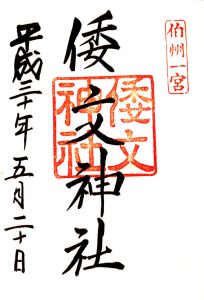 伯州一宮
倭文神社
倭文
神社
平成三十年五月二十日